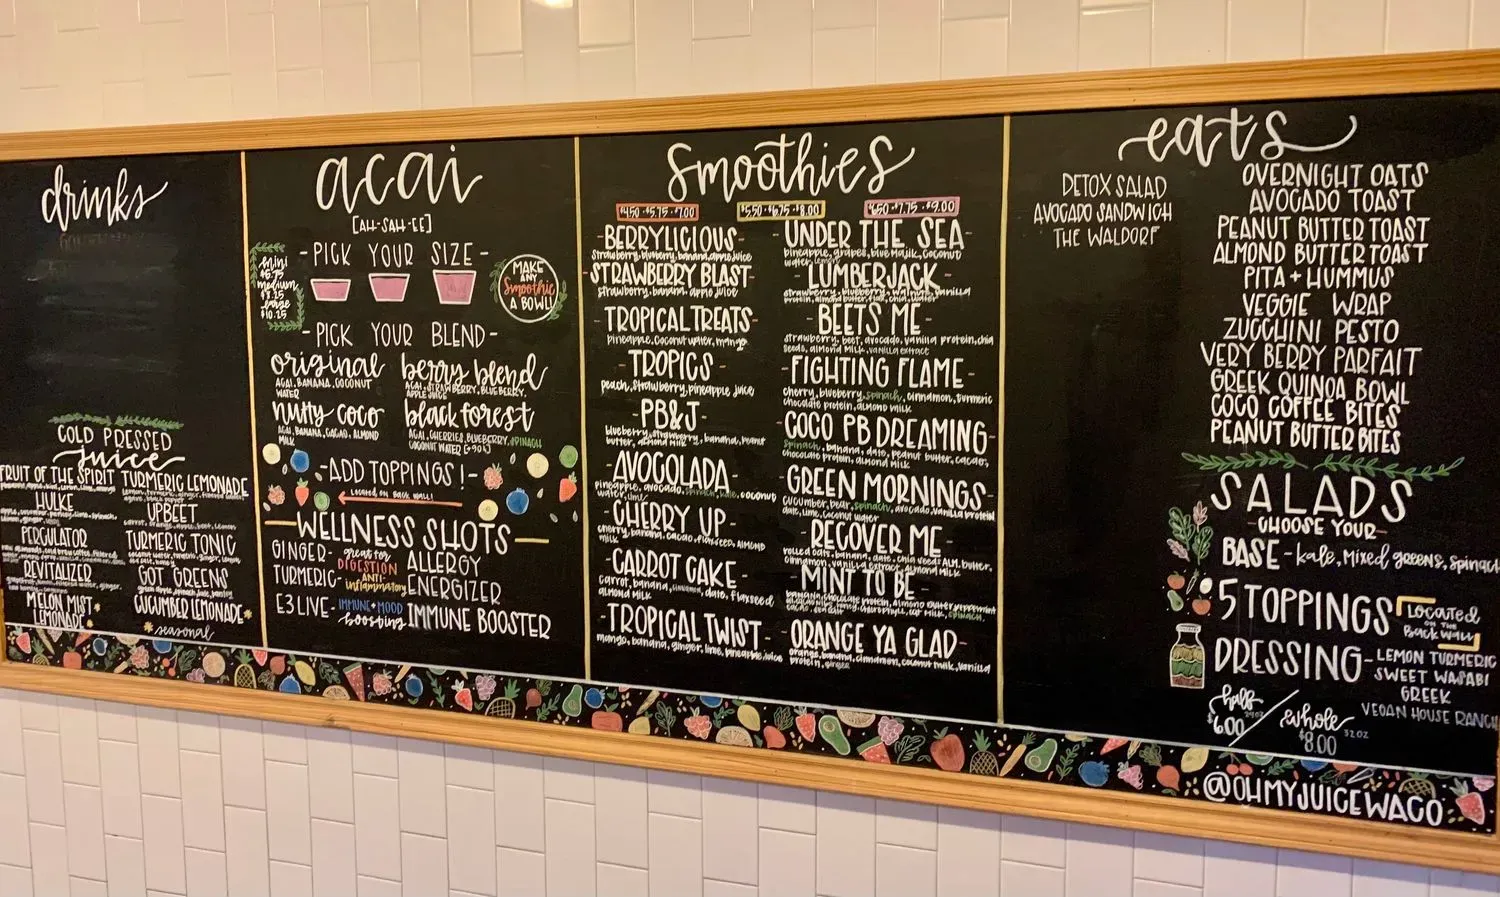 drinks
COLD PRESSED
juice
FRUIT OF THE SPIRIT
HULKE
PERCULATOR
REVITALIZER
MELON MIST
LEMONADE
TURMERIC LEMONADE
UPBEET
TURMERIC TONIC
GOT GREENS
CUCUMBER LEMONADE
*seasonal
acai
[AH-SAH-EE]
-PICK YOUR SIZE-
mini
$5.75
medium
$8.25
large
$10.25
MAKE
ANY
Smoothie
A BOWL!
-PICK YOUR BLEND-
original
ACAI, BANANA, COCONUT
WATER
berry blend
ACAI, STRAWBERRY, BLUEBERRY,
APPLE JUICE
nutty coco
ACAI, BANANA, CACAO, ALMOND
MILK
black forest
ACAI, CHERRIES, BLUEBERRY, SPINACH
COCONUT WATER [+90¢]
-ADD TOPPINGS!-
LOCATED ON BACK WALL!
WELLNESS SHOTS
GINGER- great for
DIGESTION
TURMERIC- ANTI-
inflammatory
E3LIVE- IMMUNE+MOOD
boosting
ALLERGY
ENERGIZER
IMMUNE BOOSTER
smoothies
$4.50 · $5.75 · $7.00
$5.50 · $6.75 · $8.00
$6.50 · $7.75 · $9.00
-BERRYLICIOUS-
strawberry, blueberry, banana, apple juice
-STRAWBERRY BLAST-
strawberry, banana, apple juice
-TROPICAL TREATS-
pineapple, coconut water, mango
-TROPICS-
peach, strawberry, pineapple juice
-PB&J-
blueberry, strawberry, banana, peanut
butter, almond milk
-AVOCOLADA-
pineapple, avocado, spinach, kale, coconut
water, lime
-CHERRY UP-
cherry, banana, cacao, flaxseed, almond
milk
-CARROT CAKE-
carrot, banana, cinnamon, date, flaxseed
almond milk
-TROPICAL TWIST-
mango, banana, ginger, lime, pineapple juice
-UNDER THE SEA-
pineapple, grapes, blue majik, coconut
water,
-LUMBERJACK-
strawberry, blueberry, walnut, vanilla
protein, almond butter, flax, chia, water
-BEETS ME-
strawberry, beet, avocado, vanilla protein, chia
seeds, almond milk, vanilla extract
-FIGHTING FLAME-
cherry, blueberry, spinach, cinnamon, turmeric
chocolate protein, almond milk
-COCO PB DREAMING-
spinach, banana, date, peanut butter, cacao,
chocolate protein, almond milk
-GREEN MORNINGS-
cucumber, pear, spinach, avocado, vanilla protein
date, lime, coconut water
-RECOVER ME-
rolled oats, banana, date, chia seed, alm. butter,
cinnamon, vanilla extract, almond milk
-MINT TO BE-
banana, chocolate protein, almond butter, peppermint
-ORANGE YA GLAD-
orange, banana, cinnamon, coconut milk, vanilla
protein, ginger
eats
DETOX SALAD
AVOCADO SANDWICH
THE WALDORF
OVERNIGHT OATS
AVOCADO TOAST
PEANUT BUTTER TOAST
ALMOND BUTTER TOAST
PITA + HUMMUS
VEGGIE WRAP
ZUCCHINI PESTO
VERY BERRY PARFAIT
GREEK QUINOA BOWL
COCO COFFEE BITES
PEANUT BUTTER BITES
SALADS
-CHOOSE YOUR-
BASE - kale, mixed greens, spinach
5 TOPPINGS
LOCATED
ON THE
Back wall
DRESSING - LEMON TURMERIC
SWEET WASABI
GREEK
VEGAN HOUSE RANCH
half 24oz
$6.00
whole 32oz
$8.00
@OHMYJUICEWACO